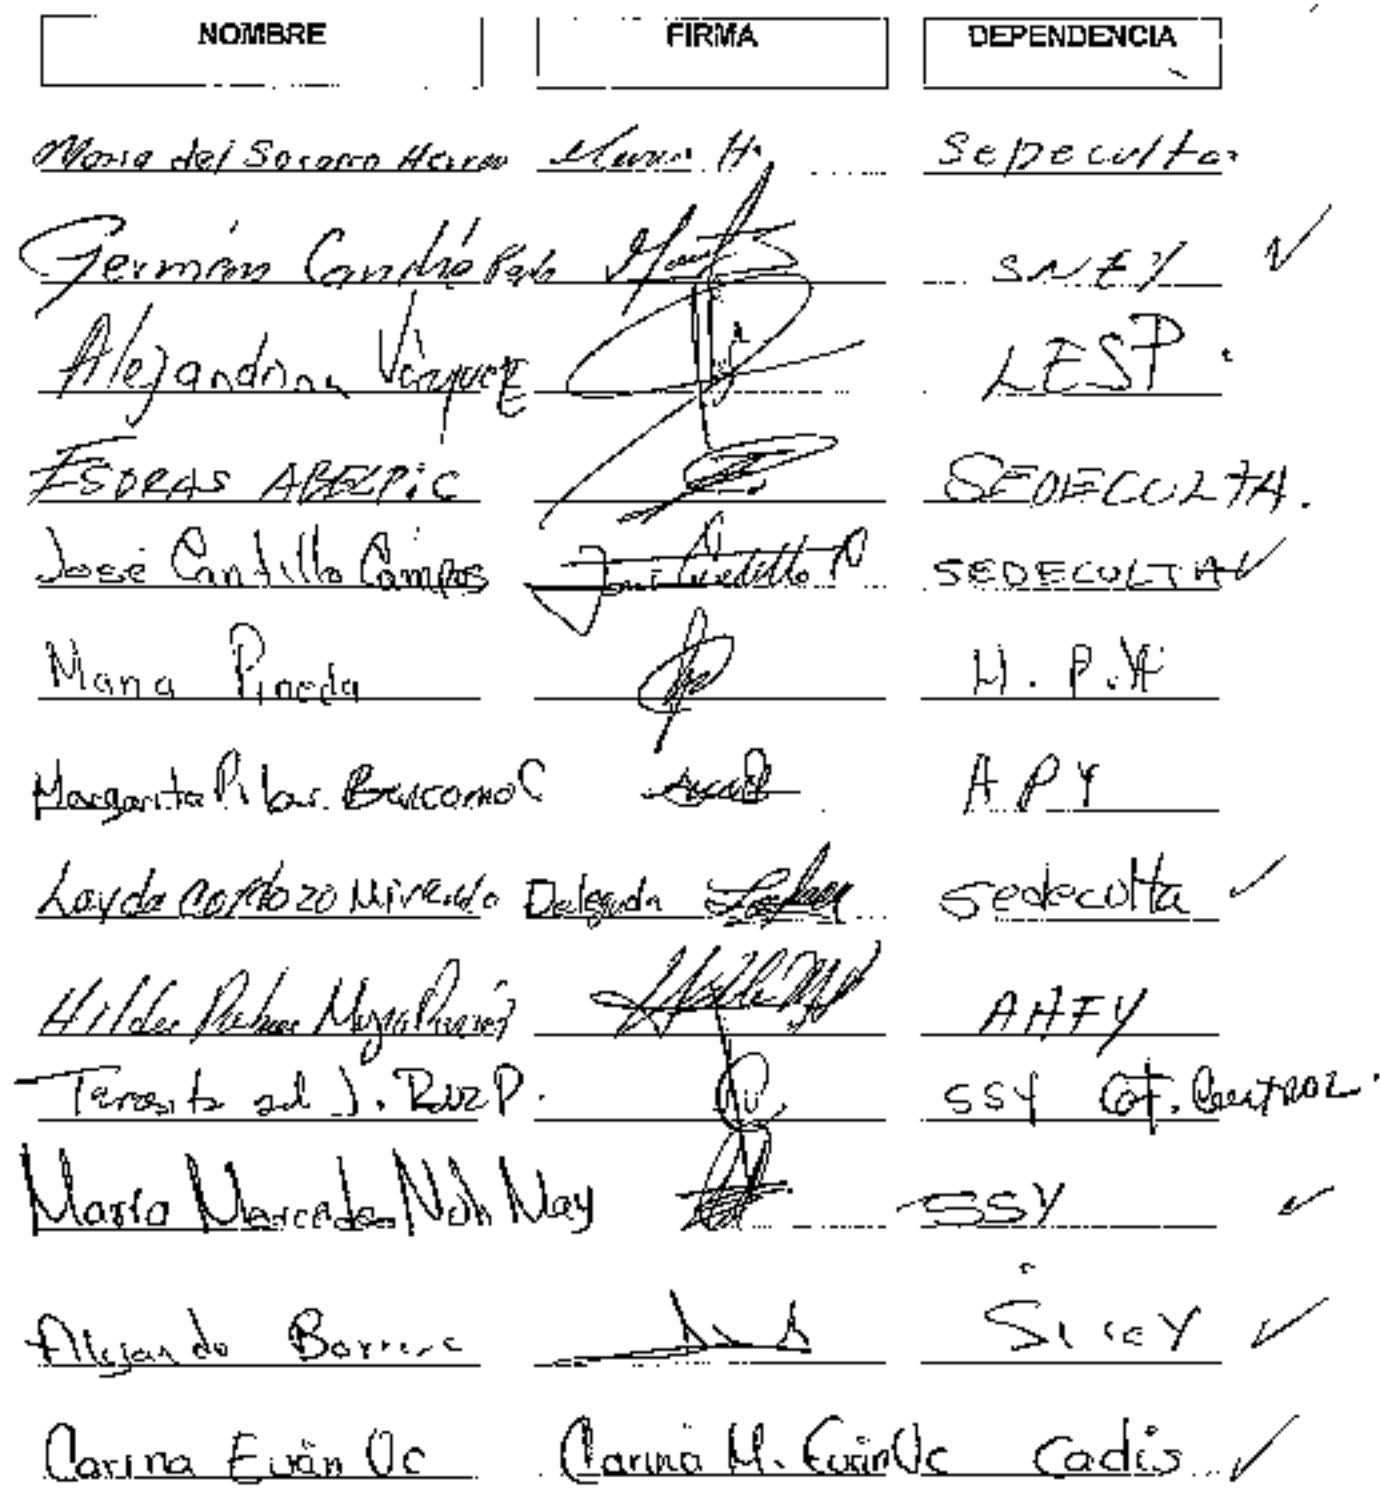 NOMBRE FIRMA DEPENDENCIA
Maria del Socorro H. Sepeculta
Germán SNEY
Alejandrina Vazquez LESP
ESDRAS ABEL PIC SEDECULTA.
José Cantillo Campos José Cantillo C SEDECULTA
Maria Pineda
Margarita Pilar C APY
Layda Cardozo Delegada Sedeculta
Hilda AHFY
Teresita del J. Ruiz P. SSY Of. Central.
María Mercedes Noh May SSY
Alejandro Barrera
Carina Euán Uc Carina M. Euán Uc Cadis